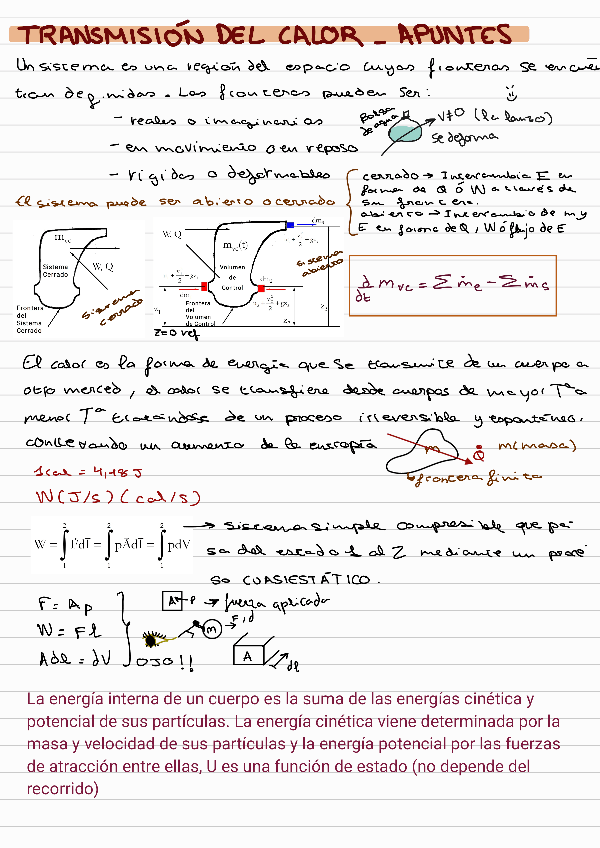 TRANSMISIÓN DEL CALOR _ APUNTES
Un sistema es una región del espacio cuyas fronteras se encuen
tran definidas. Las fronteras pueden ser:
- reales o imaginarias
Bolsa de agua
V≠0 (la lanzo)
se deforma
- en movimiento o en reposo
- rígidas o deformables
El sistema puede ser abierto o cerrado
cerrado → Intercambia E en
forma de Q ó W a través de
su frontera.
abierto → Intercambio de m y
E en forma de Q, W ó flujo de E
m_vc
Sistema
Cerrado
W, Q
Frontera
del
Sistema
Cerrado
sistema
cerrado
W, Q
m_vc(t)
Volumen
de
Control
Frontera
del
Volumen
de Control
z=0 ref
sistema
abierto
d/dt m_vc = Σ ṁe - Σ ṁs
El calor es la forma de energía que se transmite de un cuerpo a
otro merced, el calor se transfiere desde cuerpos de mayor Tª a
menor Tª tratándose de un proceso irreversible y espontáneo.
conllevando un aumento de la entropía
m
Q̇
m(masa)
frontera finita
1cal = 4,18 J
W(J/s)(cal/s)
→ sistema simple compresible que pa-
sa del estado 1 al 2 mediante un proce
so CUASIESTÁTICO.
F = Ap
W = Fl
Adl = dV
OJO!!
A P → fuerza aplicada
m
F, d
A
dl
La energía interna de un cuerpo es la suma de las energías cinética y
potencial de sus partículas. La energía cinética viene determinada por la
masa y velocidad de sus partículas y la energía potencial por las fuerzas
de atracción entre ellas, U es una función de estado (no depende del
recorrido)